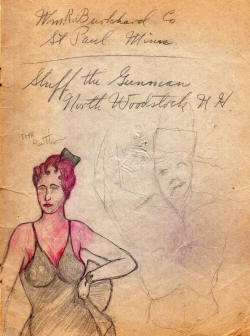 Wm R. Burkhard Co
St Paul Minn
Stuff the Gunman
North Woodstock N H